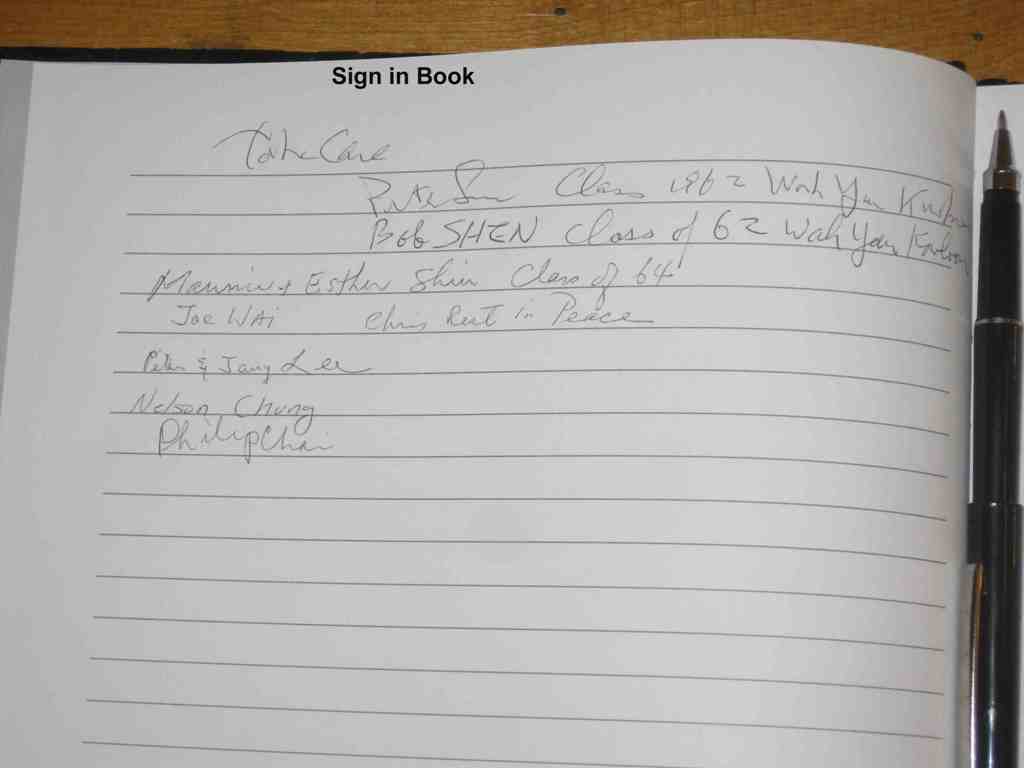 Sign in Book
Take Care
Class 1962 Wah Yan Kowloon
Bob SHEN Class of 62 Wah Yan Kowloon
Esther Shiu Class of 64
Joe WAI Chris Rest in Peace
Peter & Jany Lee
Nelson Chung
Philip Chai